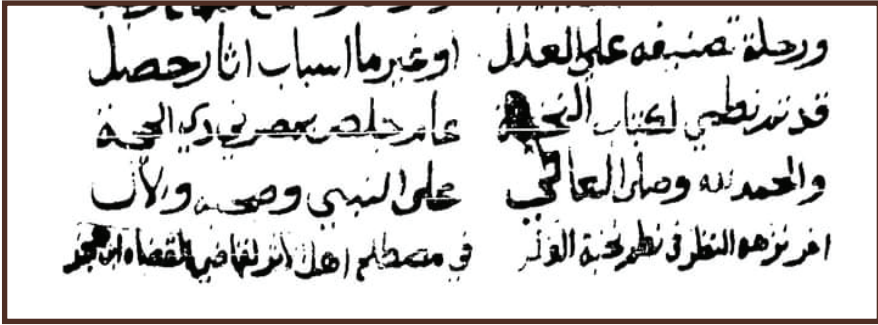 ورحلة تصنيفه على العلل او غير ما اسباب اثار حصل
قد تم نظمي لكتاب النخبة عام بمصر في ذي الحجة
والحمد لله وصلى العالي على النبي وصحبه والآل
اخر نزهه النظر في نظم نخبة الفكر في مصطلح اهل الاثر لقاضي القضاه ابن حجر